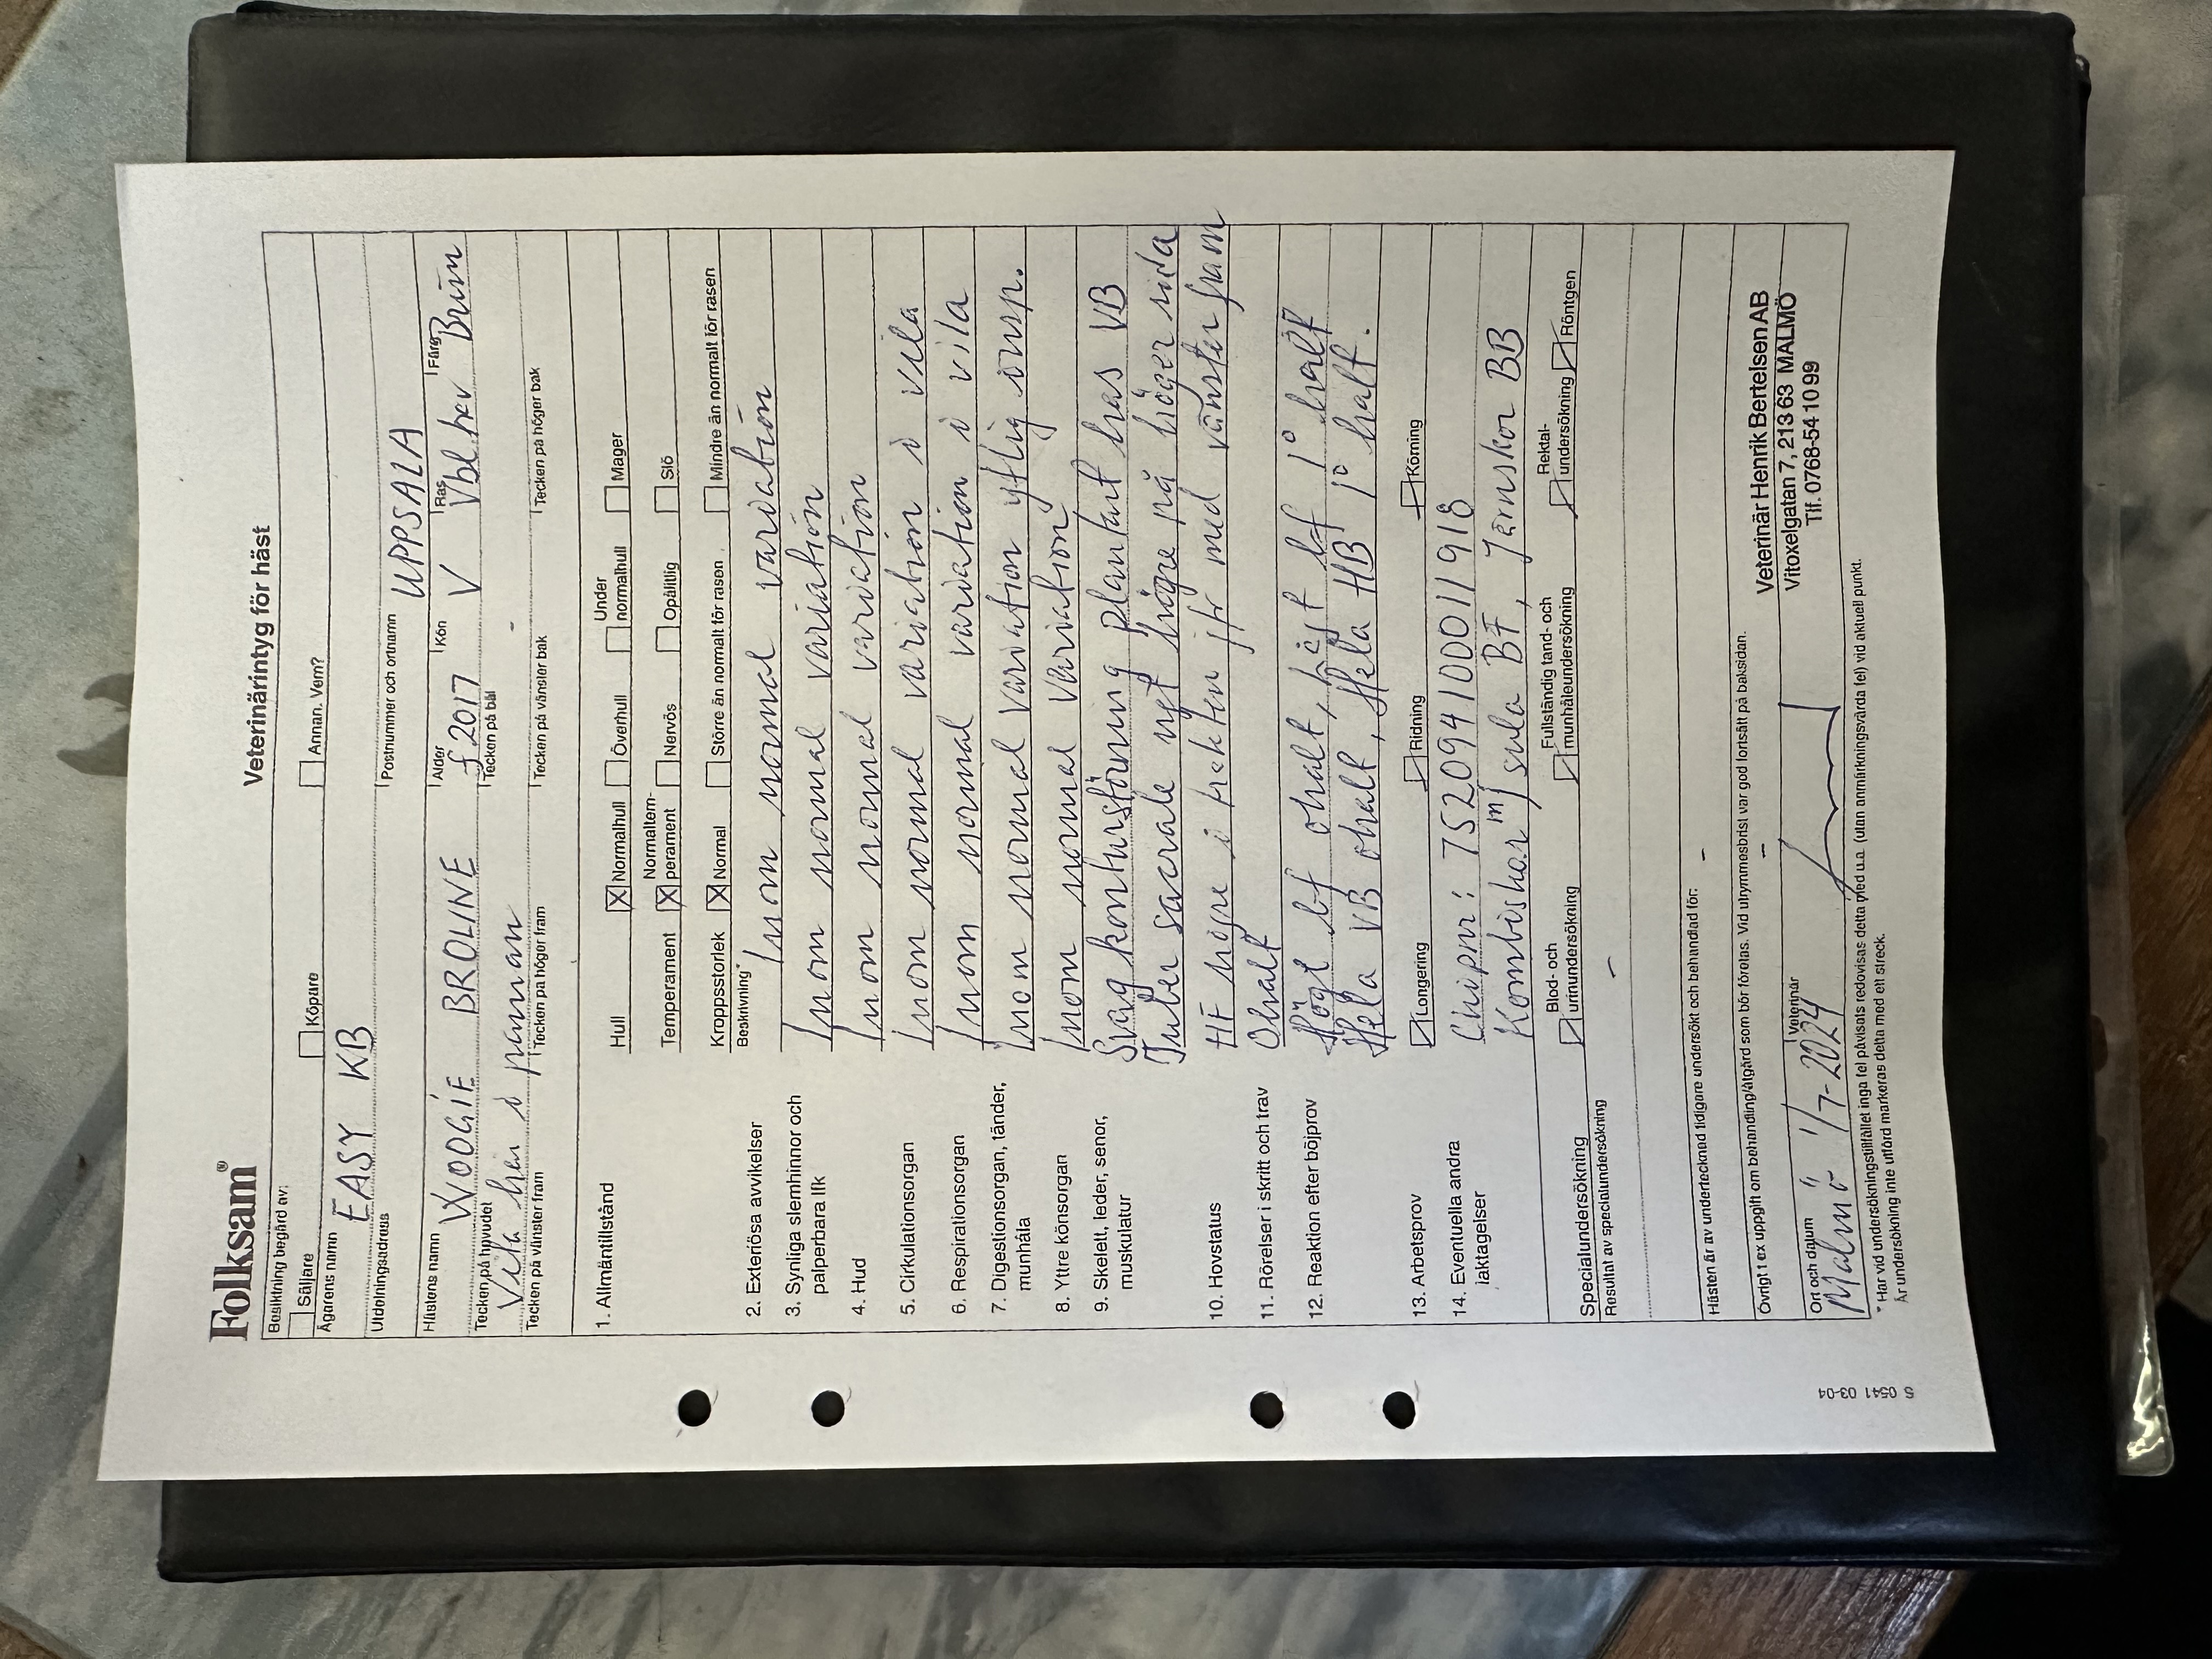 Folksam®
Veterinärintyg för häst
Besiktning begärd av:
Säljare Köpare Annan. Vem?
Ägarens namn
EASY KB
Utdelningsadress Postnummer och ortnamn
UPPSALA
Hästens namn Ålder Kön Ras Färg
WOOGIE BROLINE f 2017 V Vbl hev Brun
Tecken på huvudet Tecken på bål
Vita hår i pannan -
Tecken på vänster fram Tecken på höger fram Tecken på vänster bak Tecken på höger bak
1. Allmäntillstånd
Hull X Normalhull Överhull Under normalhull Mager
Temperament X Normaltem-perament Nervös Opålitlig Slö
Kroppsstorlek X Normal Större än normalt för rasen Mindre än normalt för rasen
Beskrivning*
2. Exteriösa avvikelser Inom normal variation
3. Synliga slemhinnor och Inom normal variation
palperbara llfk
4. Hud Inom normal variation
5. Cirkulationsorgan Inom normal variation i vila
6. Respirationsorgan Inom normal variation i vila
7. Digestionsorgan, tänder, Inom normal variation ytlig insp.
munhåla
8. Yttre könsorgan Inom normal variation
9. Skelett, leder, senor, Svag kontursförning plantart has VB
muskulatur Tuber sacrale ngt högre på höger sida
10. Hovstatus HF högre i trakten jfr med vänster fram
11. Rörelser i skritt och trav Ohalt
12. Reaktion efter böjprov Högt bf ohalt, högt hf 1° halt
Hela VB ohalt, Hela HB 1° halt.
13. Arbetsprov Longering Ridning Körning
14. Eventuella andra Chipnr: 752094100011918
iakttagelser Kombiskor mj sula BF, Järnskor BB
Specialundersökning Blod- och urinundersökning Fullständig tand- och munhåleundersökning Rektal-undersökning Röntgen
Resultat av specialundersökning
-
Hästen är av undertecknad tidigare undersökt och behandlad för: -
Övrigt t ex uppgift om behandling/åtgärd som bör företas. Vid utrymmesbrist var god fortsätt på baksidan.
-
Veterinär Henrik Bertelsen AB
Vitoxelgatan 7, 213 63 MALMÖ
Tlf. 0768-54 10 99
Ort och datum Veterinär
Malmö 1/7-2024
* Har vid undersökningstillfället inga fel påvisats redovisas detta med u.a. (utan anmärkningsvärda fel) vid aktuell punkt.
Är undersökning inte utförd markeras detta med ett streck.
S 0541 03-04